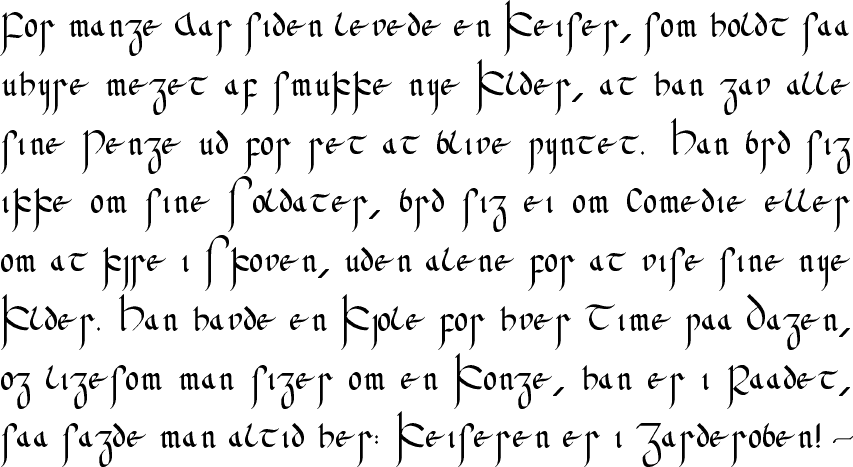 For mange Aar siden levede en Keiser, som holdt saa
uhyre meget af smukke nye Klder, at han gav alle
sine Penge ud for ret at blive pyntet. Han brd sig
ikke om sine Soldater, brd sig ei om Comedie eller
om at kjre i Skoven, uden alene for at vise sine nye
Klder. Han havde en Kjole for hver Time paa Dagen,
og ligesom man siger om en Konge, han er i Raadet,
saa sagde man altid her: Keiseren er i Garderoben! –